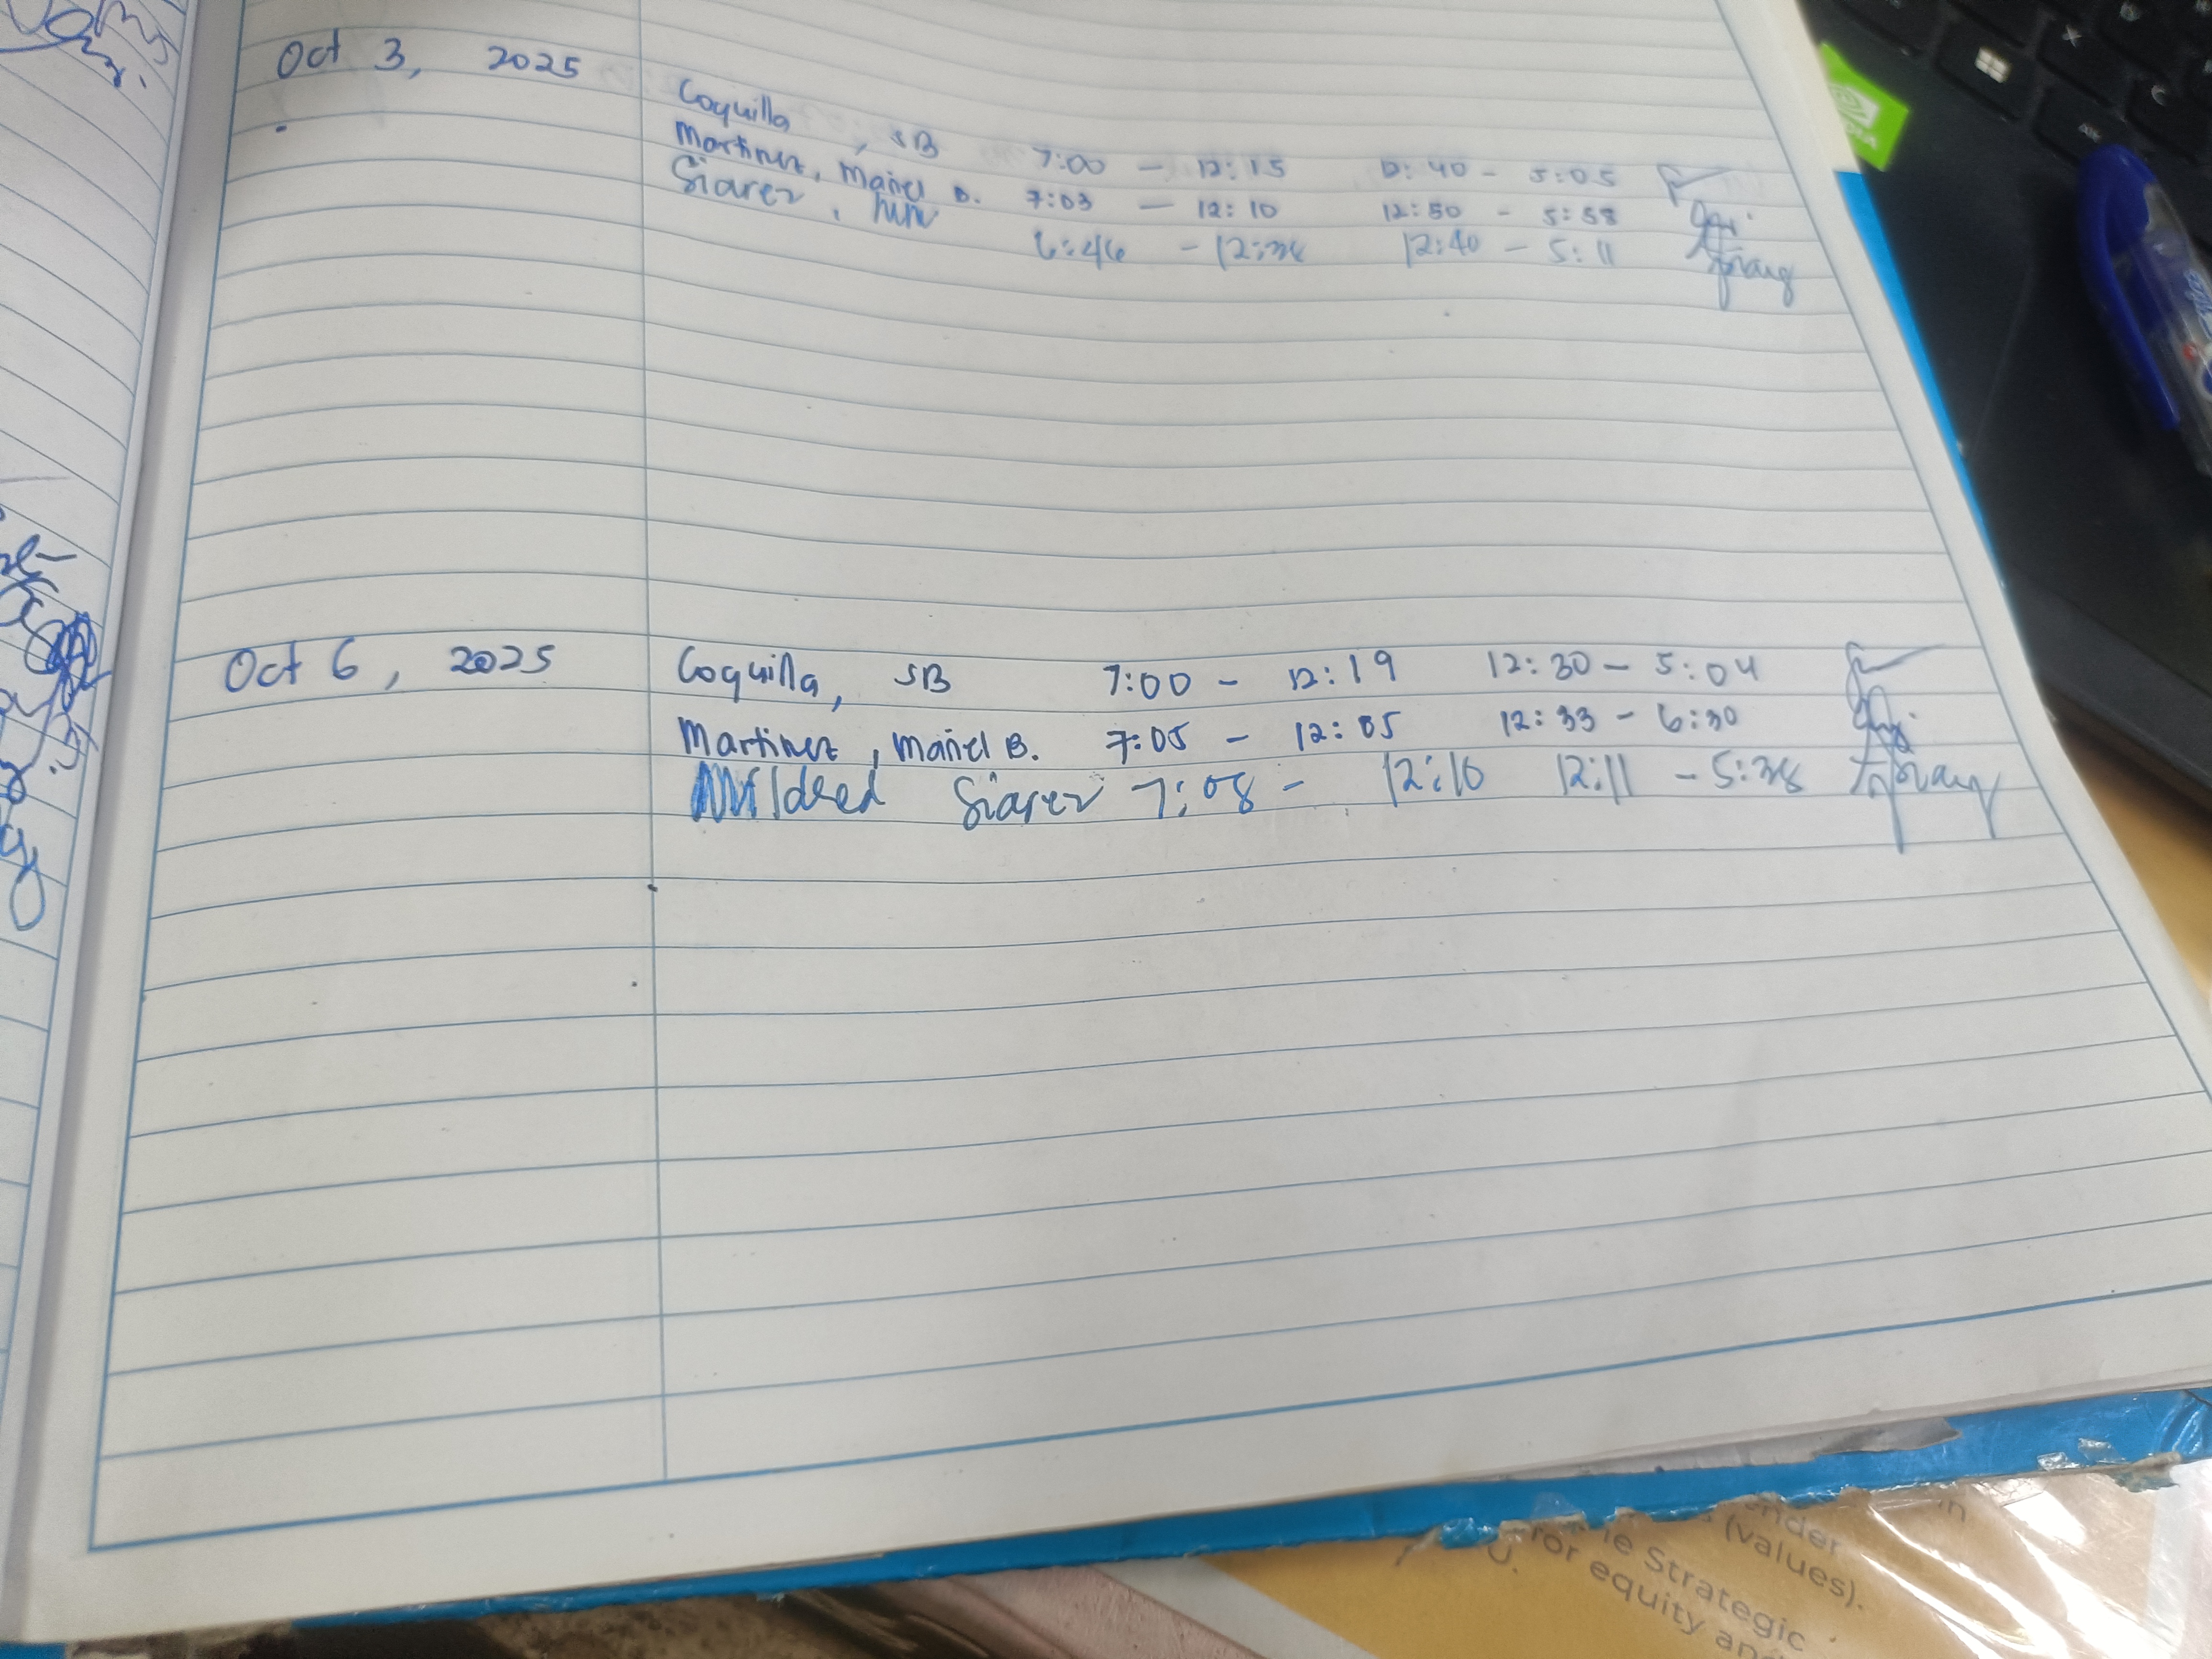 Oct 3, 2025
Coquilla, SB 7:00 - 12:15 12:40 - 5:05
Martinez, Mañel B. 7:03 - 12:10 12:50 - 5:58
Siarez, MM 6:46 - 12:38 12:40 - 5:11
Oct 6, 2025
Coquilla, SB 7:00 - 12:19 12:30 - 5:04
Martinez, Mañel B. 7:05 - 12:05 12:33 - 6:30
Mildred Siarez 7:08 - 12:10 12:11 - 5:38
ender
in
(values).
ie Strategic
for equity and